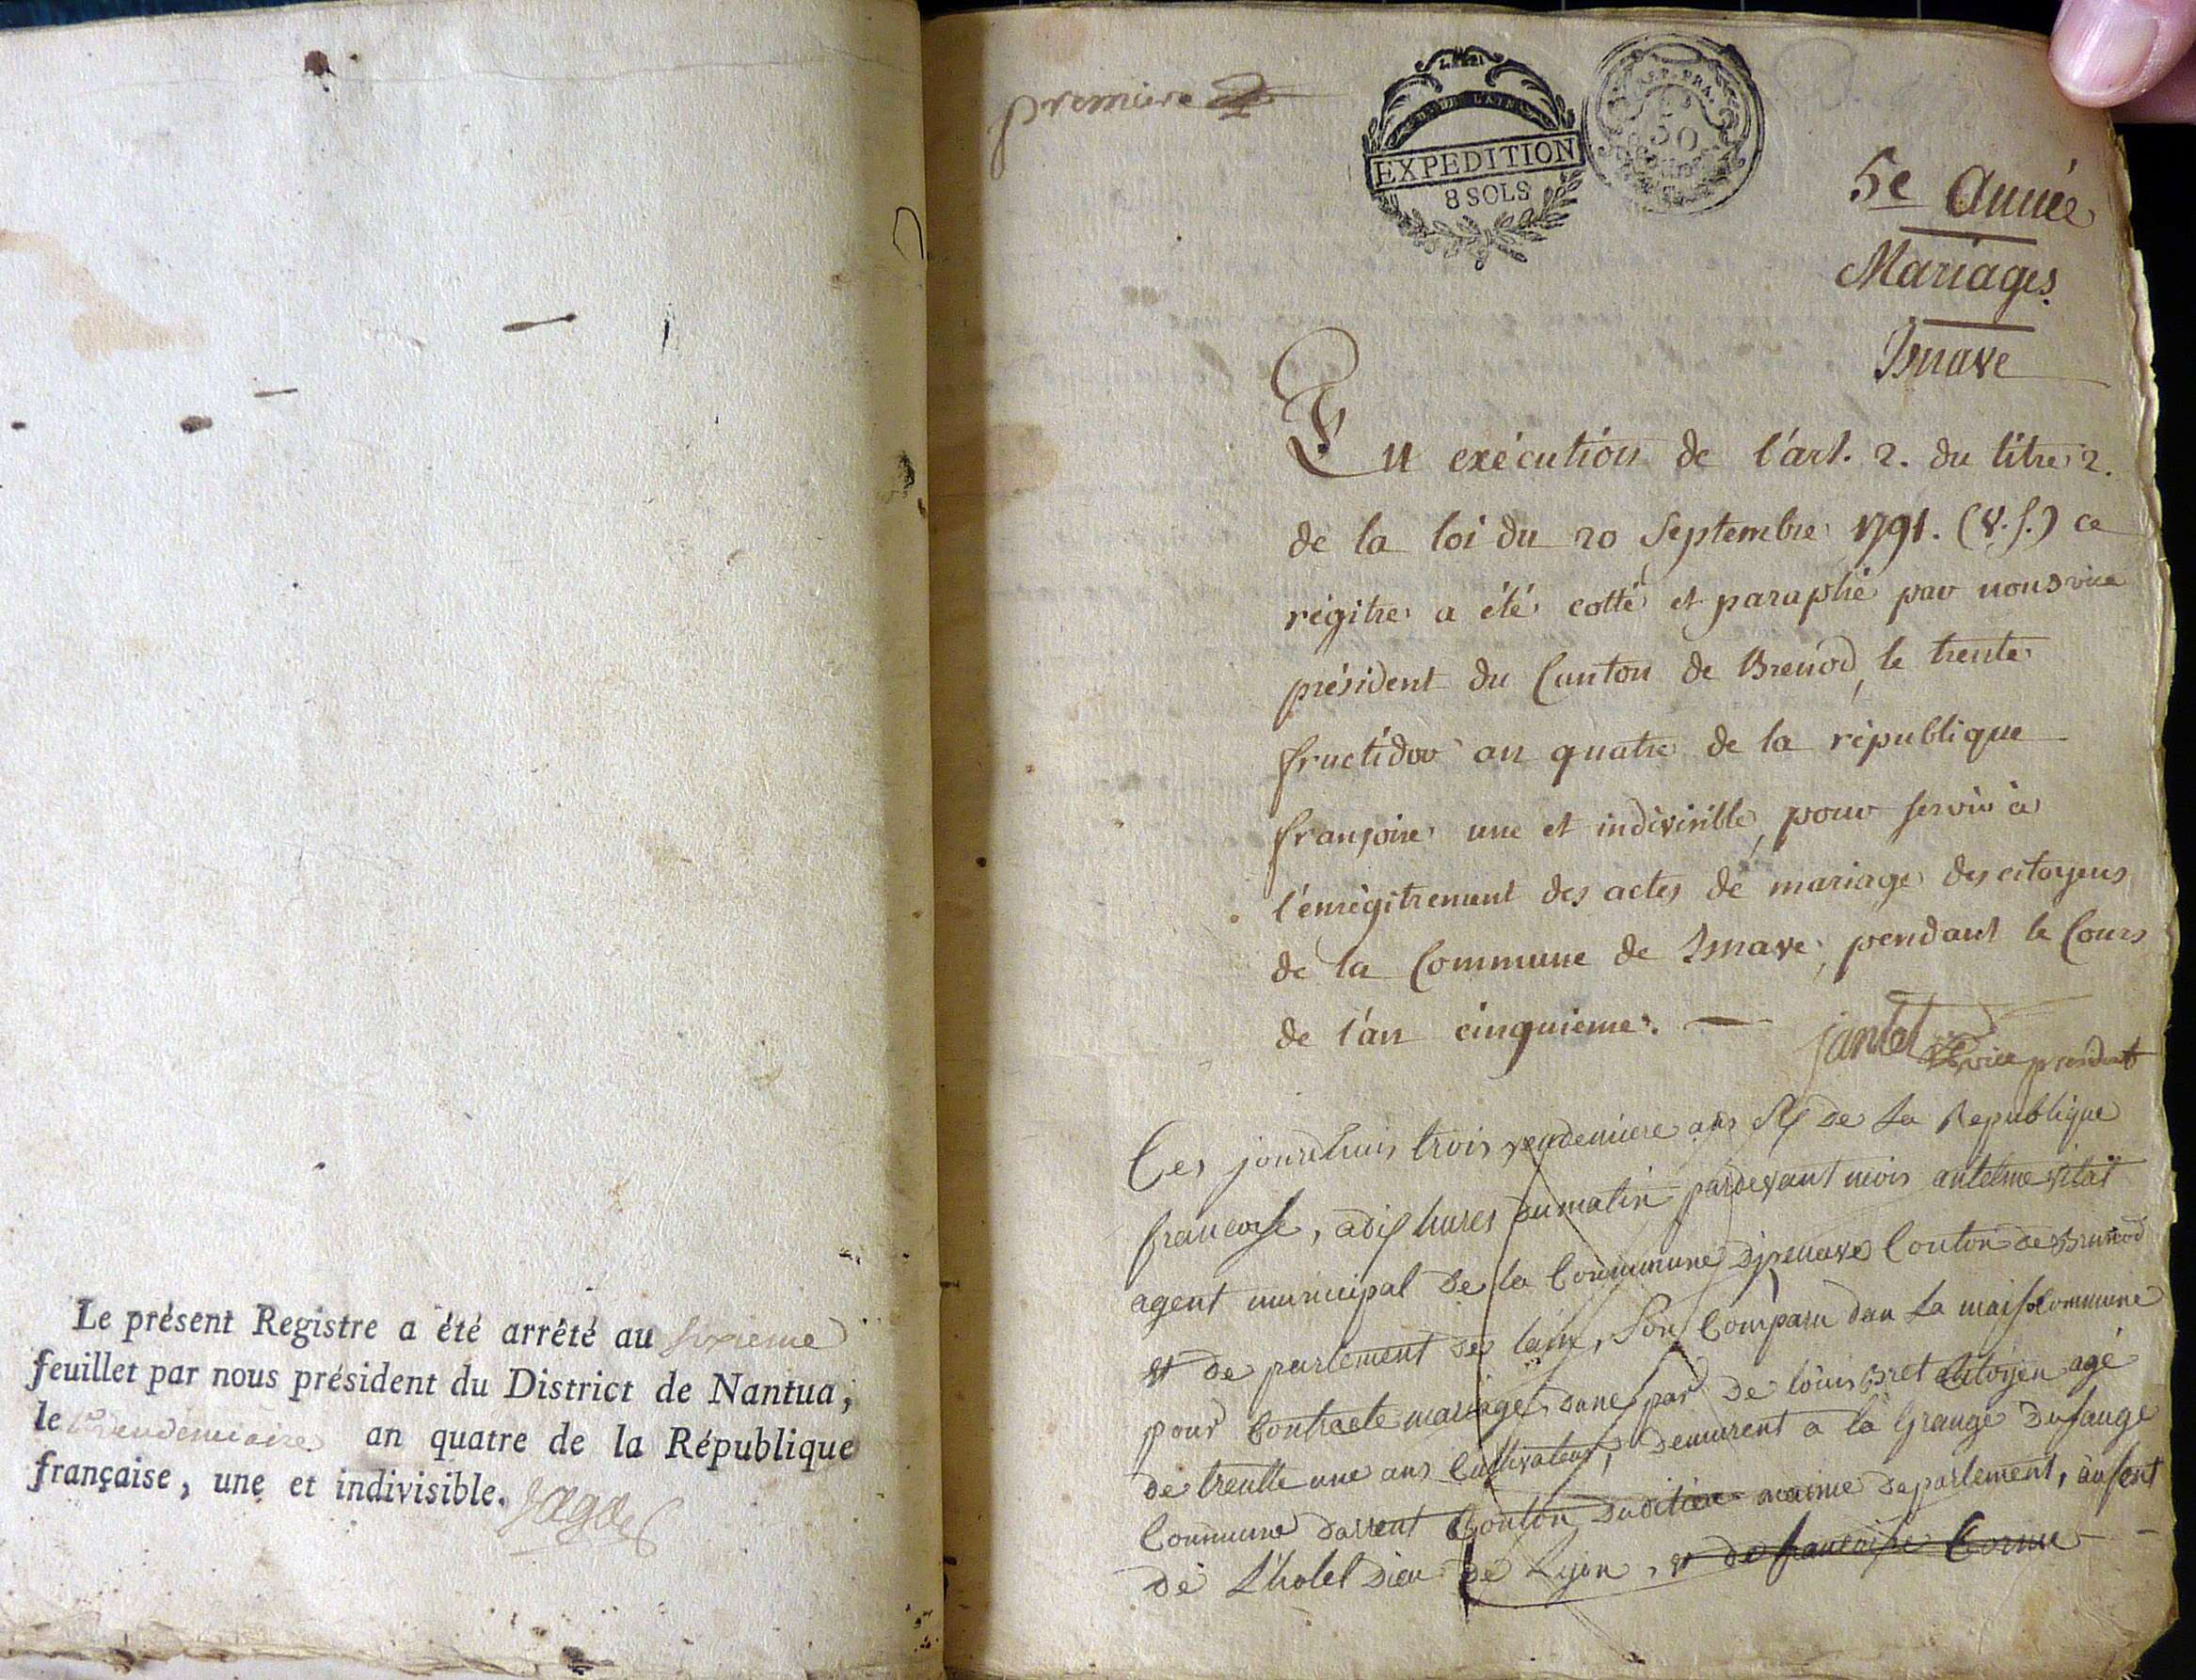 Le présent Registre a été arrêté au sixieme
feuillet par nous président du District de Nantua,
le vendemiaire an quatre de la République
française, une et indivisible.
premiere
EXPEDITION
8 SOLS
REP. FRA.
50
5e Année
Mariages
Isnave
En exécution de l'art. 2. du titre 2.
de la loi du 20 Septembre 1791. (V.S.) ce
régitre a été cotté et paraphé par nous vice
président du Canton de Brenod, le trente
fructidor an quatre de la république
françoise une et indivisible, pour servir à
l'enrégitrement des actes de mariage des citoyens
de la Commune de Isnave, pendant le Cours
de l'an cinquieme.
Jantet vice president
Ces jourdhuis trois vendemiere ans de La Republique
francoise, a dix hures du matin pardevant mois antelme vilat
agent municipal de la Commune Conton de Brunod
et de partement de lain, Son Comparu dan La maison Commune
pour Contracte mariage, dune par de louis Bret Citoÿen agé
de trentte une ans Cultivateur, demurent a la Grange du fauge
Commune Conton dudit meime departement, anfent
de L'hotel Dieu de Lyon, et de francoise Cornu